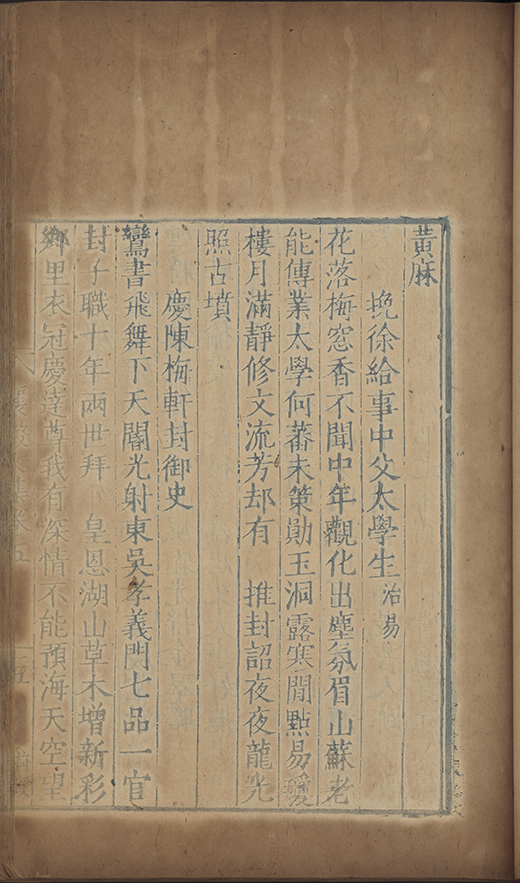 黃麻
挽徐給事中父太學生治易
花落梅窓香不聞中年觀化出塵氛眉山蘇老
能傳業太學何蕃未策勛玉洞露寒閒點易瓊
樓月滿靜修文流芳却有 推封詔夜夜龍光
照古墳
慶陳梅軒封御史
鸞書飛舞下天閽光射東吳孝義門七品一官
封子職十年兩世拜 皇恩湖山草木增新彩
鄉里衣冠慶達尊我有深情不能預海天空望